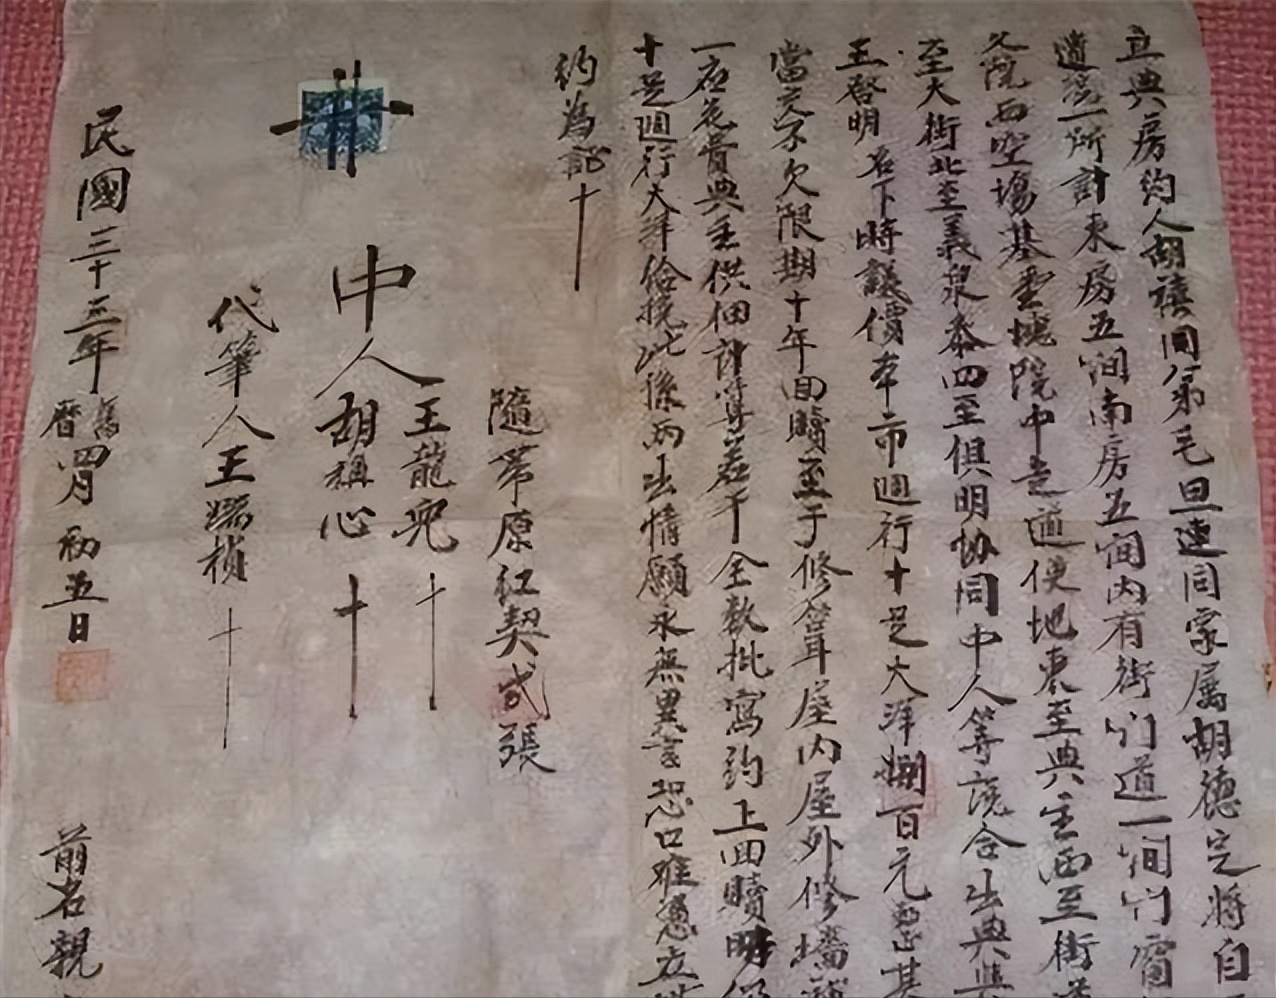 立典房約人胡禧同弟毛旦連同家属胡德定將自
遺一所計東房五间南房五间内有街门道一间门窗
院西空塲基壹塊院中走道使地東至典主西至街
至大街北至義泉泰四至俱明協同中人等說合出典與
王啓明名下時議價本市通行十足大洋捌百元整其
當交不欠限期十年回贖至于修葺屋内屋外修墻
一應花費典主供佃計算若干全數批寫約上回贖時仍
十足通行大洋給撓此係兩出情願永無異言恐口难憑立
約為証十
隨帶原红契弍張
王龍兜十
中人胡福心十
代筆人王端楨十
民國三十三年舊曆四月初五日
前名親